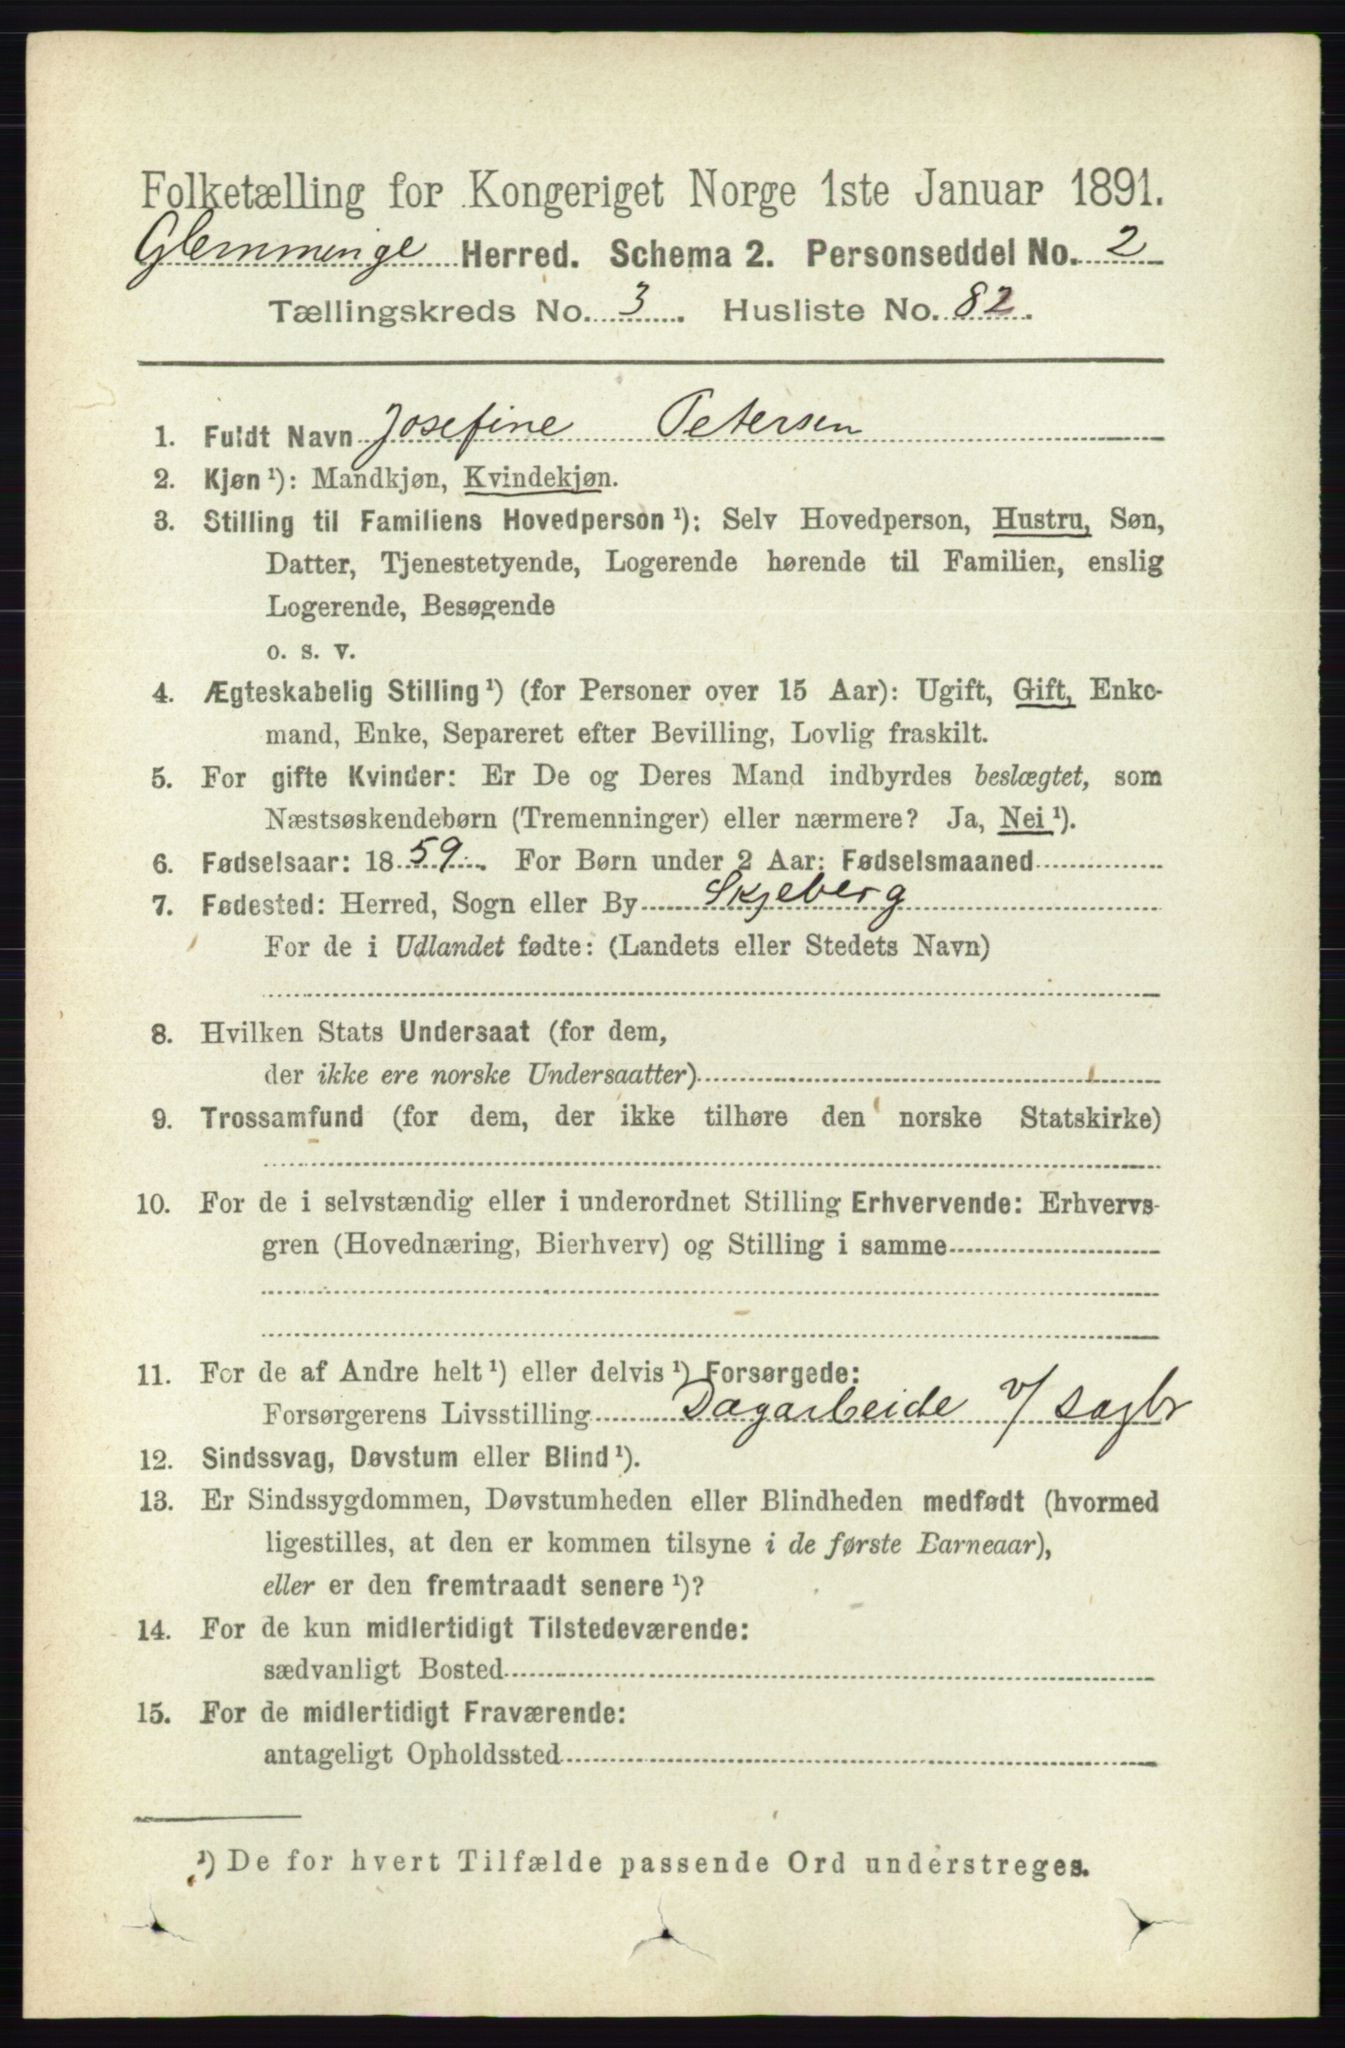 Folketælling for Kongeriget Norge 1ste Januar 1891.
Glemminge Herred. Schema 2. Personseddel No. 2
Tællingskreds No. 3. Husliste No. 82.
1. Fuldt Navn Josefine Petersen
2. Kjøn ¹): Mandkjøn, Kvindekjøn.
3. Stilling til Familiens Hovedperson ¹): Selv Hovedperson, Hustru, Søn,
Datter, Tjenestetyende, Logerende hørende til Familien, enslig
Logerende, Besøgende
o. s. v.
4. Ægteskabelig Stilling ¹) (for Personer over 15 Aar): Ugift, Gift, Enke-
mand, Enke, Separeret efter Bevilling, Lovlig fraskilt.
5. For gifte Kvinder: Er De og Deres Mand indbyrdes beslægtet, som
Næstsøskendebørn (Tremenninger) eller nærmere? Ja, Nei ¹).
6. Fødselsaar: 1859. For Børn under 2 Aar: Fødselsmaaned
7. Fødested: Herred, Sogn eller By Skjeberg
For de i Udlandet fødte: (Landets eller Stedets Navn)
8. Hvilken Stats Undersaat (for dem,
der ikke ere norske Undersaatter)
9. Trossamfund (for dem, der ikke tilhøre den norske Statskirke)
10. For de i selvstændig eller i underordnet Stilling Erhvervende: Erhvervs-
gren (Hovednæring, Bierhverv) og Stilling i samme
11. For de af Andre helt ¹) eller delvis ¹) Forsørgede:
Forsørgerens Livsstilling Dagarbeide v/ sagbr
12. Sindssvag, Døvstum eller Blind ¹).
13. Er Sindssygdommen, Døvstumheden eller Blindheden medfødt (hvormed
ligestilles, at den er kommen tilsyne i de første Barneaar),
eller er den fremtraadt senere ¹)?
14. For de kun midlertidigt Tilstedeværende:
sædvanligt Bosted
15. For de midlertidigt Fraværende:
antageligt Opholdssted
¹) De for hvert Tilfælde passende Ord understreges.